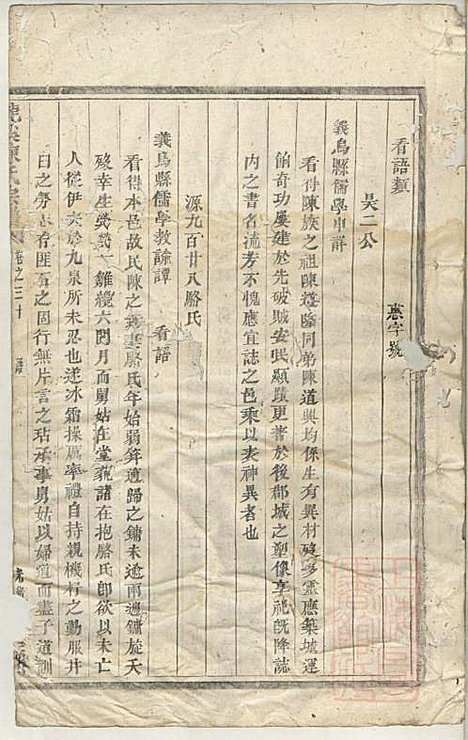 看語類
吴二公　惠字號
義烏縣儒學申詳
看得陳族之祖陳遂隆同弟陳道興均係生有異材歿多靈應築城運
餉奇功屢建於先破城安民顯蹟更著於後郡城之塑像享祀既降誌
內之書名流芳不愧應宜誌之邑乘以表神異者也
源九百廿八駱氏
義烏縣儒學教諭譚　看語
看得本邑故民陳之鏞妻駱氏年始弱笄適歸之鏞未逾兩週鏞旋夭
殁幸生煢煢一雛纔六閱月而舅姑在堂藐諸在抱駱氏卽欲以未亡
人從伊夫於九泉所未忍也遂冰霜操厲率禮自持親機杼之勤服井
臼之勞志存匪石之固行無片言之玷承事舅姑以婦道而盡子道訓
陳氏宗譜　卷之三十